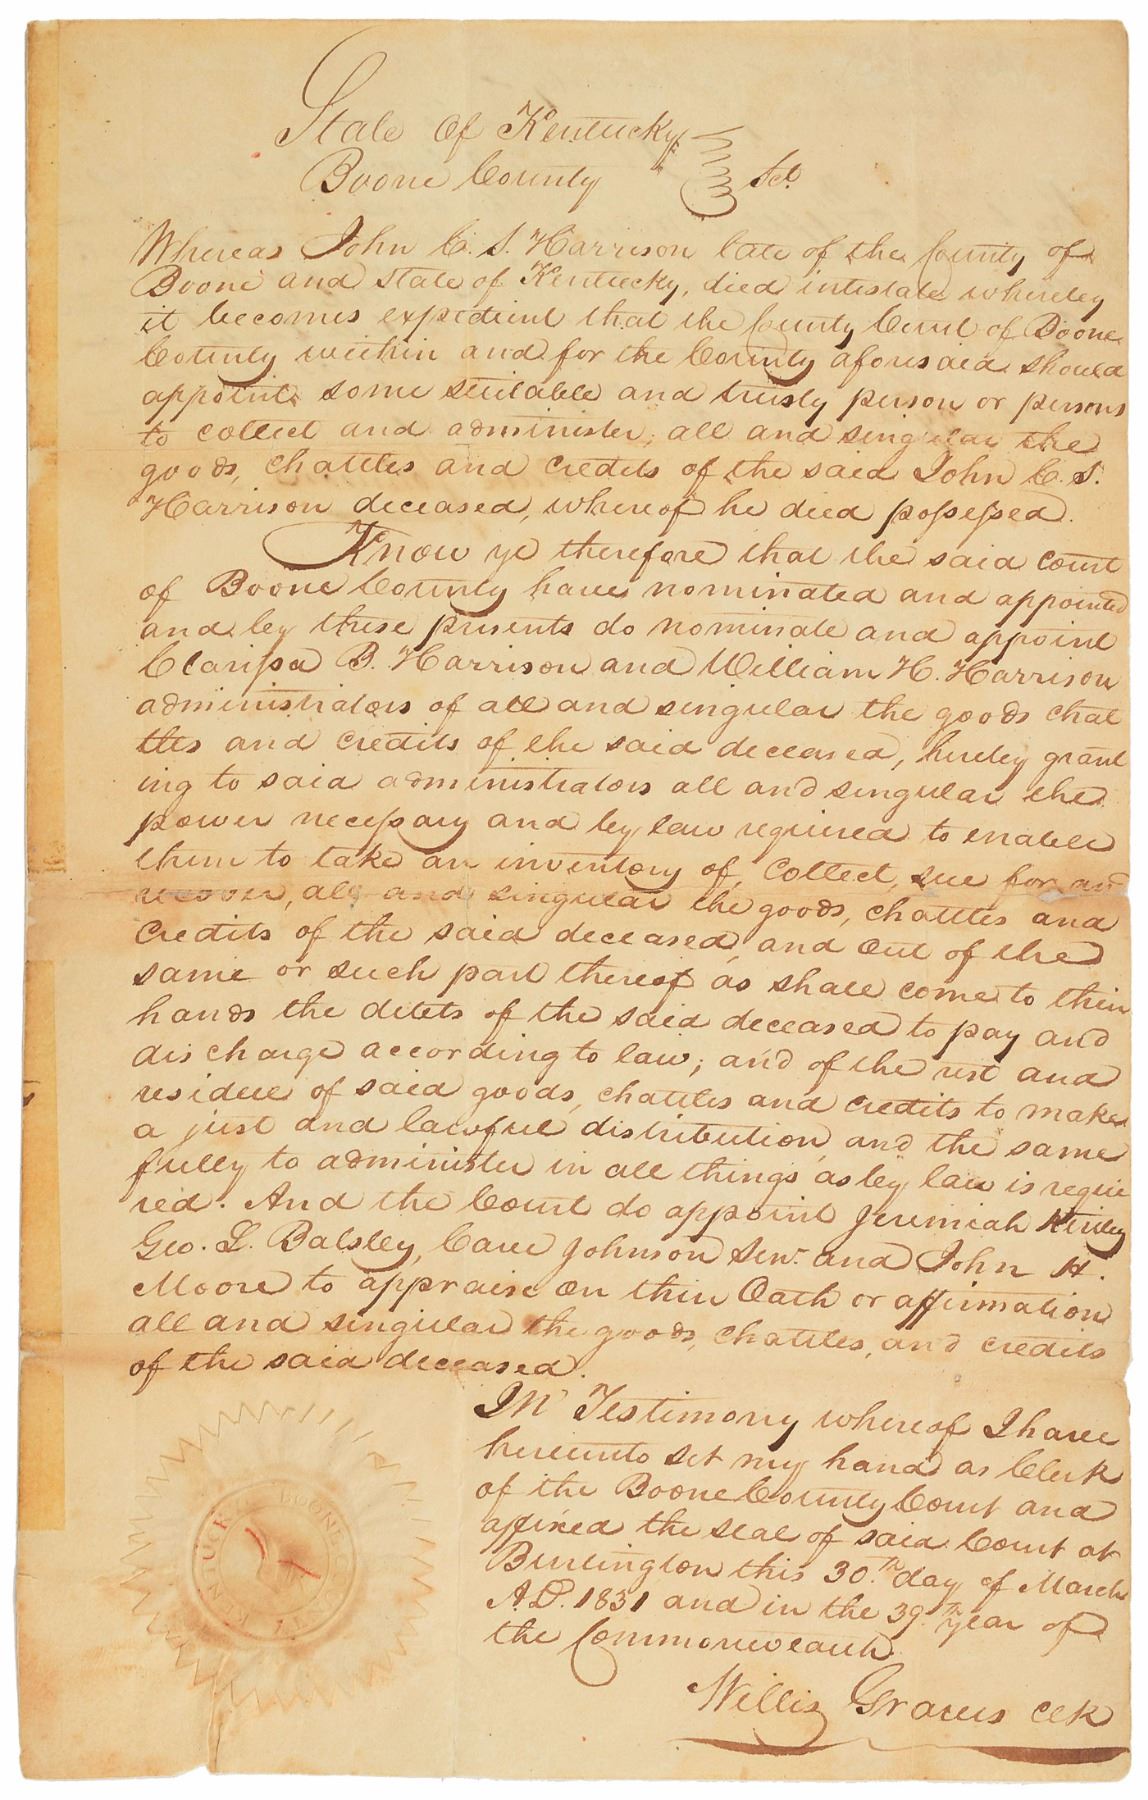 State Of Kentucky
Boone County Sct.
Whereas John C. S. Harrison late of the County of
Boone and State of Kentucky, died intestate whereby
it becomes expedient that the County Court of Boone
County within and for the County aforesaid should
appoint some suitable and trusty person or persons
to collect and administer, all and singular the
goods, chattles and credits of the said John C. S.
Harrison deceased, whereof he died possessed.
Know ye therefore that the said Court
of Boone County have nominated and appointed
and by these presents do nominate and appoint
Clarissa B. Harrison and William H. Harrison
administrators of all and singular the goods chat
tles and credits of the said deceased, hereby grant
ing to said administrators all and singular the
power necessary and by law required to enable
them to take an inventory of, Collect, sue for and
recover, all and singular the goods, chattles and
Credits of the said deceased, and Out of the
same or such part thereof as shall come to their
hands the debts of the said deceased to pay and
discharge according to law; and of the rest and
residue of said goods, chattles and credits to make
a just and lawful distribution, and the same
fully to administer in all things as by law is requi
red. And the Court do appoint Jeremiah Kirtley
Geo. L. Balsley, Cave Johnson Senr. and John H.
Moore to appraise on their Oath or affirmation
all and singular the goods, chattles, and credits
of the said deceased.
In Testimony whereof I have
hereunto set my hand as Clerk
of the Boone County Court and
affixed the seal of said Court at
Burlington this 30.th day of March
A.D. 1831 and in the 39th year of
the Commonwealth.
Willis Graves Clk
BOONE
KENTUCKY